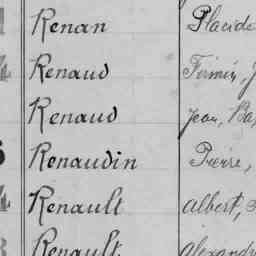 Renan Placide
Renaud Firmin, J
Renaud Jean, Ba
Renaudin Pierre,
Renault Albert,
Renault Alexandr